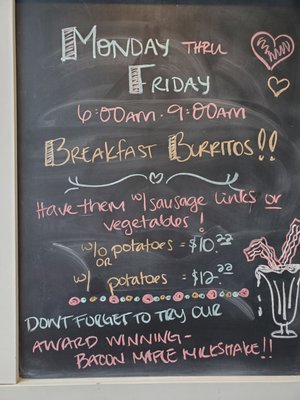 MONDAY THRU
FRIDAY
6:00AM-9:00AM
BREAKFAST BURRITOS!!
Have them w/ sausage links or
vegetables!
w/o potatoes = $10.22
OR
w/ potatoes = $12.22
DON'T FORGET TO TRY OUR
AWARD WINNING-
BACON MAPLE MILKSHAKE!!